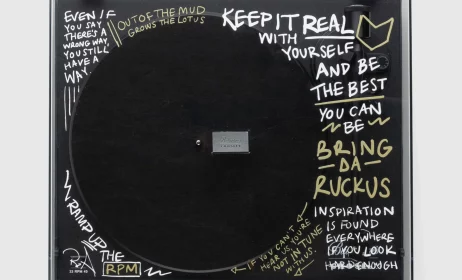 EVEN IF
YOU SAY
THERE'S A
WRONG WAY
YOU STILL
HAVE A
WAY.
OUT OF THE MUD
GROWS THE LOTUS
KEEP IT REAL
WITH
YOURSELF
AND BE
THE BEST
YOU CAN
BE
BRING
DA
RUCKUS
INSPIRATION
IS FOUND
EVERYWHERE
IF YOU LOOK
HARD ENOUGH
IF YOU CAN'T
HEAR US YOU'RE
NOT IN TUNE
WITH US.
RAMP UP
THE
RPM
33 RPM 45